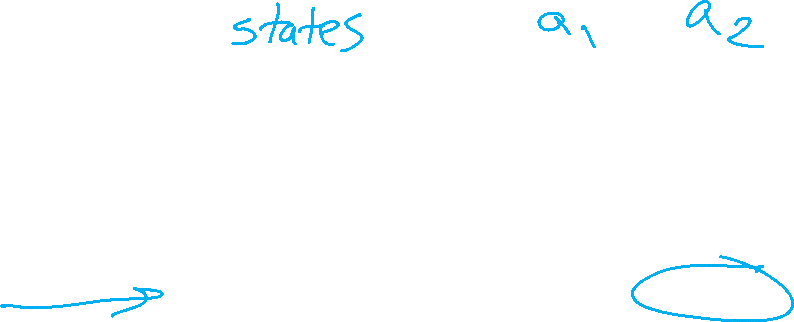 states a₁ a₂